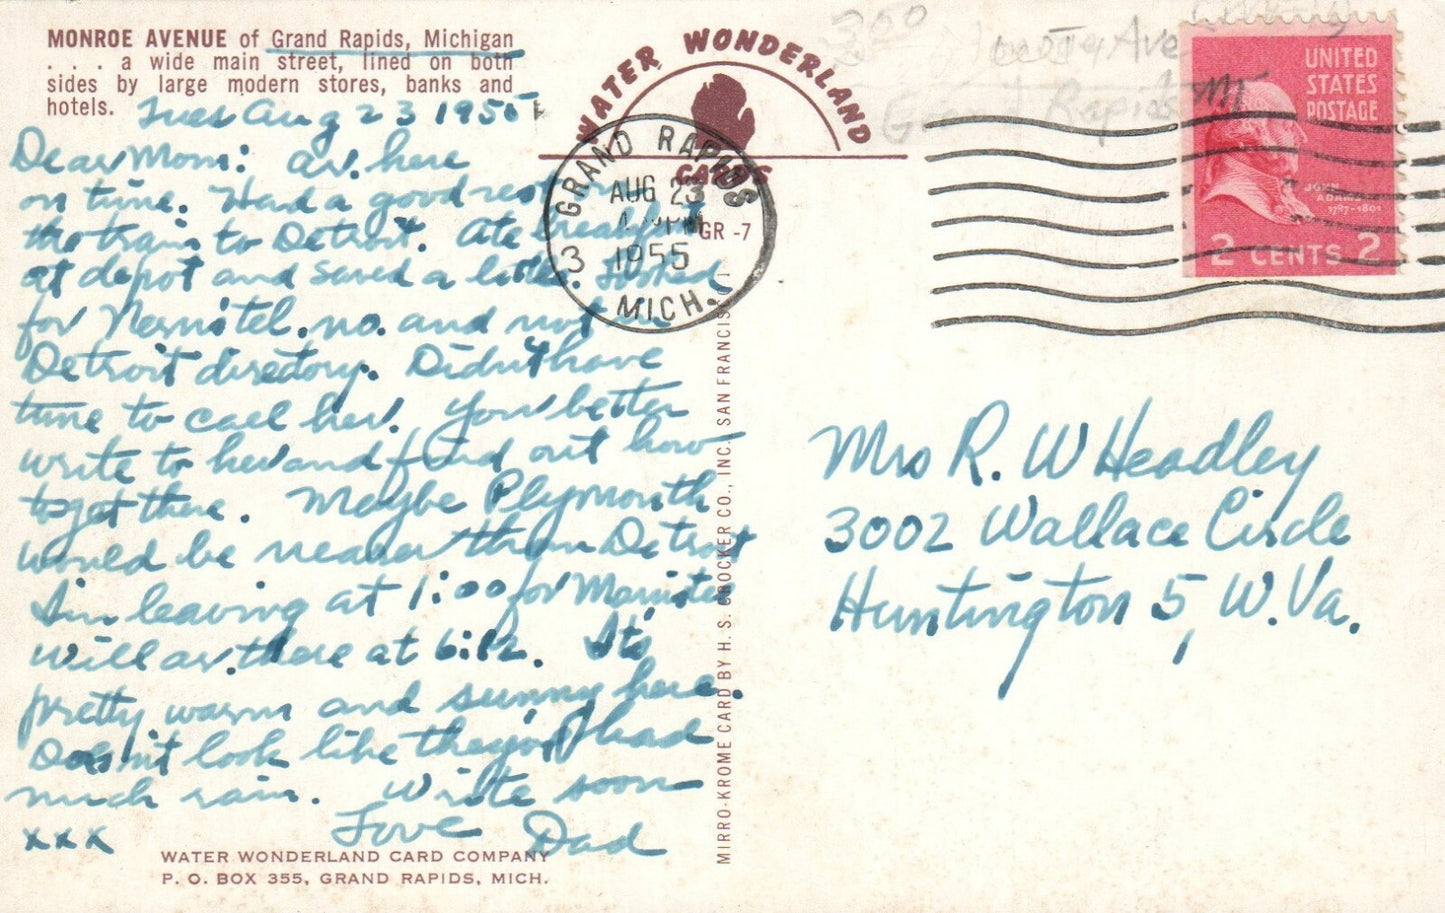 MONROE AVENUE of Grand Rapids, Michigan
. . . a wide main street, lined on both
sides by large modern stores, banks and
hotels.
Tues Aug 23 1955
Dear Mom: Ar. here
on time. Had a good rest on
the train to Detroit. Ate breakfast
at depot and saved a little. Looked
for no. and not in
Detroit directory. Didn't have
time to call her. You better
write to her and find out how
to get there. Maybe Plymouth
would be nearer than Detroit
I'm leaving at 1:00 for Manistee
will ar. there at 6:12. It's
pretty warm and sunny here.
Doesn't look like they had
much rain. Write soon
xxx Love Dad
WATER WONDERLAND CARD COMPANY
P. O. BOX 355, GRAND RAPIDS, MICH.
WATER WONDERLAND
CARDS
GR-7
GRAND RAPIDS
AUG 23
PM
1955
3
MICH.
MIRRO-KROME CARD BY H. S. CROCKER CO., INC., SAN FRANCISCO
3.50
Ave
Grand Rapids Mi
UNITED
STATES
POSTAGE
JOHN
ADAMS
1797-1801
2 CENTS 2
Mrs R. W Headley
3002 Wallace Circle
Huntington 5, W. Va.